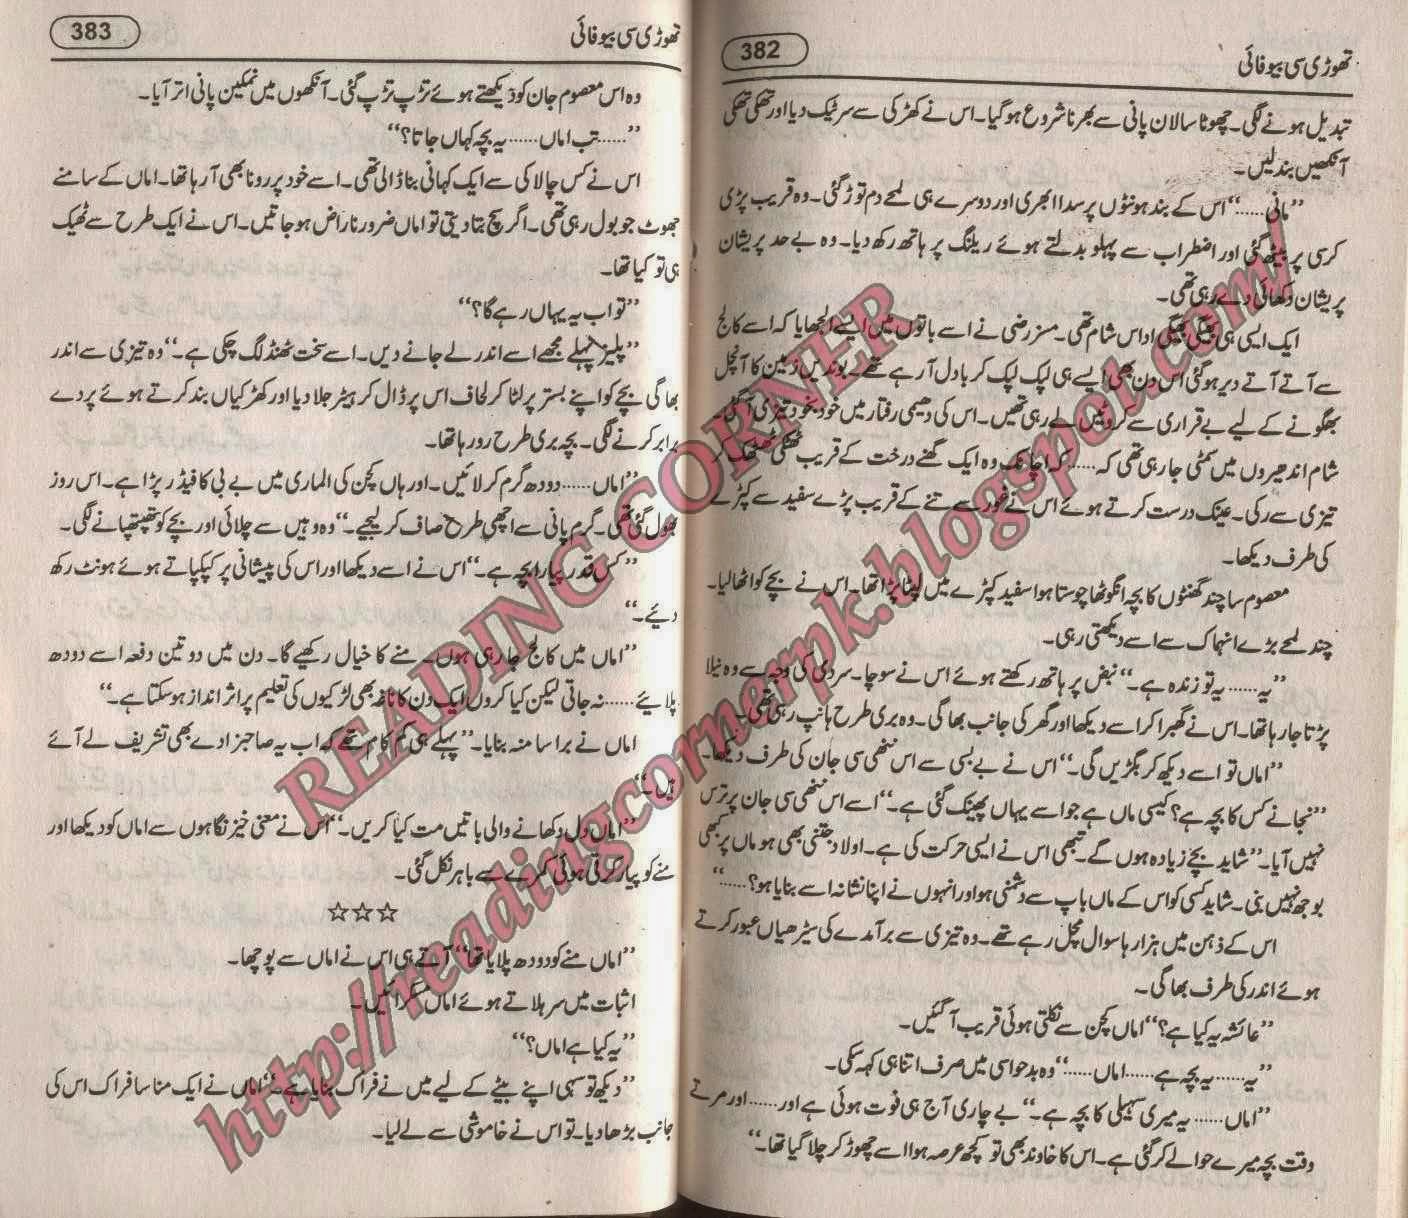 382
تھوڑی سی بیوفائی
تبدیل ہونے لگی۔ چھوٹا سا لان پانی سے بھرنا شروع ہوگیا۔ اس نے کھڑکی سے سر ٹیک دیا اور تھکی تھکی
آنکھیں بند لیں۔
”مانی......“ اس کے بند ہونٹوں پر سدا ابھری اور دوسرے ہی لمحے دم توڑ گئی۔ وہ قریب پڑی
کرسی پر بیٹھ گئی اور اضطراب سے پہلو بدلتے ہوئے ریلنگ پر ہاتھ رکھ دیا۔ وہ بے حد پریشان
پریشان دکھائی دے رہی تھی۔
ایک ایسی ہی بھیگی بھیگی اداس شام تھی۔ مسز رضی نے اسے باتوں میں ایسے الجھایا کہ اسے کالج
سے آتے آتے دیر ہوگئی اس دن بھی ایسے ہی لپک لپک کر بادل آ رہے تھے۔ بوندیں زمین کا آنچل
بھگونے کے لیے بے قراری سے کروٹیں لے رہی تھیں۔ اس کی دھیمی رفتار میں خود بخود تیزی آ گئی۔
شام اندھیروں میں سمٹی جا رہی تھی کہ...... کہ اچانک وہ ایک گھنے درخت کے قریب ٹھٹکی ٹھٹھک کر
تیزی سے رکی۔ عینک درست کرتے ہوئے اس نے غور سے تنے کے قریب پڑے سفید سے کپڑے
کی طرف دیکھا۔
معصوم سا چند گھنٹوں کا بچہ انگوٹھا چوستا ہوا سفید کپڑے میں لپٹا پڑا تھا۔ اس نے بچے کو اٹھا لیا۔
چند لمحے بڑے انہماک سے اسے دیکھتی رہی۔
”یہ...... یہ تو زندہ ہے۔“ نبض پر ہاتھ رکھتے ہوئے اس نے سوچا۔ سردی کی وجہ سے وہ نیلا
پڑتا جا رہا تھا۔ اس نے گھبرا کر اسے دیکھا اور گھر کی جانب بھاگی۔ وہ بری طرح ہانپ رہی تھی۔
”اماں تو اسے دیکھ کر بگڑیں گی۔“ اس نے بے بسی سے اس ننھی سی جان کی طرف دیکھا۔
”نجانے کس کا بچہ ہے؟ کیسی ماں ہے جو اسے یہاں پھینک گئی ہے۔“ اسے اس ننھی سی جان پر ترس
نہیں آیا۔“ شاید بچے زیادہ ہوں گے۔ تبھی اس نے ایسی حرکت کی ہے۔ اولاد جتنی بھی ہو ماں پر کبھی
بوجھ نہیں بنی۔ شاید کسی کو اس کے ماں باپ سے دشمنی ہو اور انہوں نے اپنا نشانہ اسے بنایا ہو؟......“
اس کے ذہن میں ہزار ہا سوال مچل رہے تھے۔ وہ تیزی سے برآمدے کی سیڑھیاں عبور کرتے
ہوئے اندر کی طرف بھاگی۔
”عائشہ یہ کیا ہے؟“ اماں کچن سے نکلتی ہوئی قریب آ گئیں۔
”یہ...... یہ بچہ ہے...... اماں......“ وہ بدحواسی میں صرف اتنا ہی کہہ سکی۔
”اماں...... یہ میری سہیلی کا بچہ ہے۔“ بے چاری آج ہی فوت ہوئی ہے اور...... اور مرتے
وقت بچہ میرے حوالے کر گئی ہے۔ اس کا خاوند بھی تو کچھ عرصہ ہوا اسے چھوڑ کر چلا گیا تھا۔“
383
تھوڑی سی بیوفائی
وہ اس معصوم جان کو دیکھتے ہوئے تڑپ تڑپ گئی۔ آنکھوں میں نمکین پانی اتر آیا۔
”......تب اماں...... یہ بچہ کہاں جاتا؟“
اس نے کس چالاکی سے ایک کہانی بنا ڈالی تھی۔ اسے خود پر رونا بھی آ رہا تھا۔ اماں کے سامنے
جھوٹ جو بول رہی تھی۔ اگر سچ بتا دیتی تو اماں ضرور ناراض ہو جاتیں۔ اس نے ایک طرح سے ٹھیک
ہی تو کیا تھا۔
”تو اب یہ یہاں رہے گا؟“
”پلیز پہلے مجھے اسے اندر لے جانے دیں۔ اسے سخت ٹھنڈ لگ چکی ہے۔“ وہ تیزی سے اندر
بھاگی بچے کو اپنے بستر پر لٹا کر لحاف اس پر ڈال کر ہیٹر جلا دیا اور کھڑکیاں بند کرتے ہوئے پردے
برابر کرنے لگی۔ بچہ بری طرح رو رہا تھا۔
”اماں...... دودھ گرم کر لائیں۔ اور ہاں کچن کی الماری میں بے بی کا فیڈر پڑا ہے۔ اس روز
بھول گئی تھی۔ گرم پانی سے اچھی طرح صاف کر لیجیے۔“ وہ وہیں سے چلائی اور بچے کو تھپتھپانے لگی۔
”کس قدر پیارا بچہ ہے۔“ اس نے اسے دیکھا اور اس کی پیشانی پر کپکپاتے ہوئے ہونٹ رکھ
دیئے۔“
”اماں میں کالج جا رہی ہوں۔ منے کا خیال رکھیے گا۔ دن میں دو تین دفعہ اسے دودھ
پلائیے...... نہ جاتی لیکن کیا کروں ایک دن کا ناغہ بھی لڑکیوں کی تعلیم پر اثر انداز ہوسکتا ہے۔“
اماں نے برا سا منہ بنایا۔ ”پہلے ہی کم کام تھے کہ اب یہ صاحبزادے بھی تشریف لے آئے
ہیں۔“
”اماں دل دکھانے والی باتیں مت کیا کریں۔“ اس نے معنی خیز نگاہوں سے اماں کو دیکھا اور
منے کو پیار کرتی ہوئی کمرے سے باہر نکل گئی۔
☆☆☆
”اماں منے کو دودھ پلایا تھا“ آتے ہی اس نے اماں سے پوچھا۔
اثبات میں سر ہلاتے ہوئے اماں مسکرائیں۔
”یہ کیا ہے اماں؟“
”دیکھ تو سہی اپنے بیٹے کے لیے میں نے فراک بنایا ہے۔“ اماں نے ایک منا سا فراک اس کی
جانب بڑھا دیا۔ تو اس نے خاموشی سے لے لیا۔
READING CORNER
http://readingcornerpk.blogspot.com/